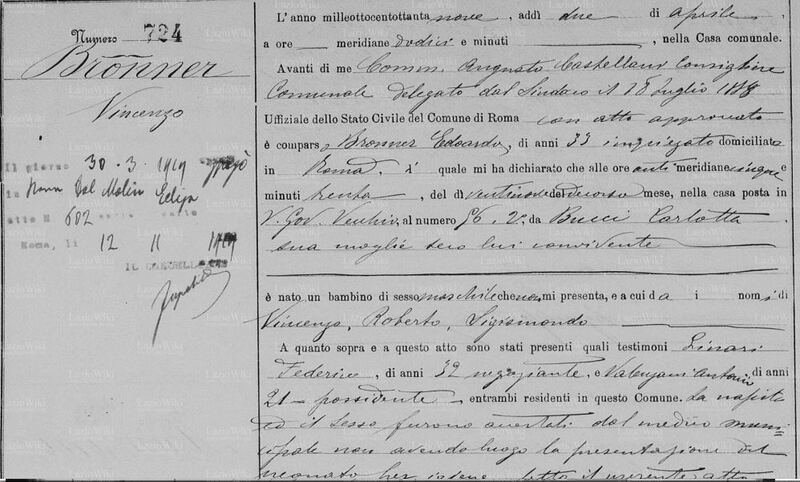 Numero 724
Bronner
Vincenzo
Il giorno 30-3-1919 sposò
in Roma Dal Molin Elisa
atto N 602
Roma, li 12 11 1919
IL CANCELLIERE
L'anno milleottocentottanta nove, addì due di aprile
a ore meridiane dodici e minuti , nella Casa comunale.
Avanti di me Comm. Augusto Castellani Consigliere
Comunale delegato dal Sindaco il 18 Luglio 1888
Uffiziale dello Stato Civile del Comune di Roma con atto approvato
è comparso Bronner Edoardo, di anni 33 impiegato domiciliato
in Roma, il quale mi ha dichiarato che alle ore anti meridiane cinque e
minuti trenta, del dì ventinove del decorso mese, nella casa posta in
V. Gov. Vecchio, al numero 96.2°, da Bucci Carlotta
sua moglie seco lui convivente
è nato un bambino di sesso maschile che non mi presenta, e a cui dà i nomi di
Vincenzo, Roberto, Sigismondo
A quanto sopra e a questo atto sono stati presenti quali testimoni Linari
Federico, di anni 32 negoziante, e Antonio di anni
21 possidente entrambi residenti in questo Comune. La nascita
ed il sesso furono accertati dal medico muni=
cipale non avendo luogo la presentazione del
neonato per igiene letto il presente atto